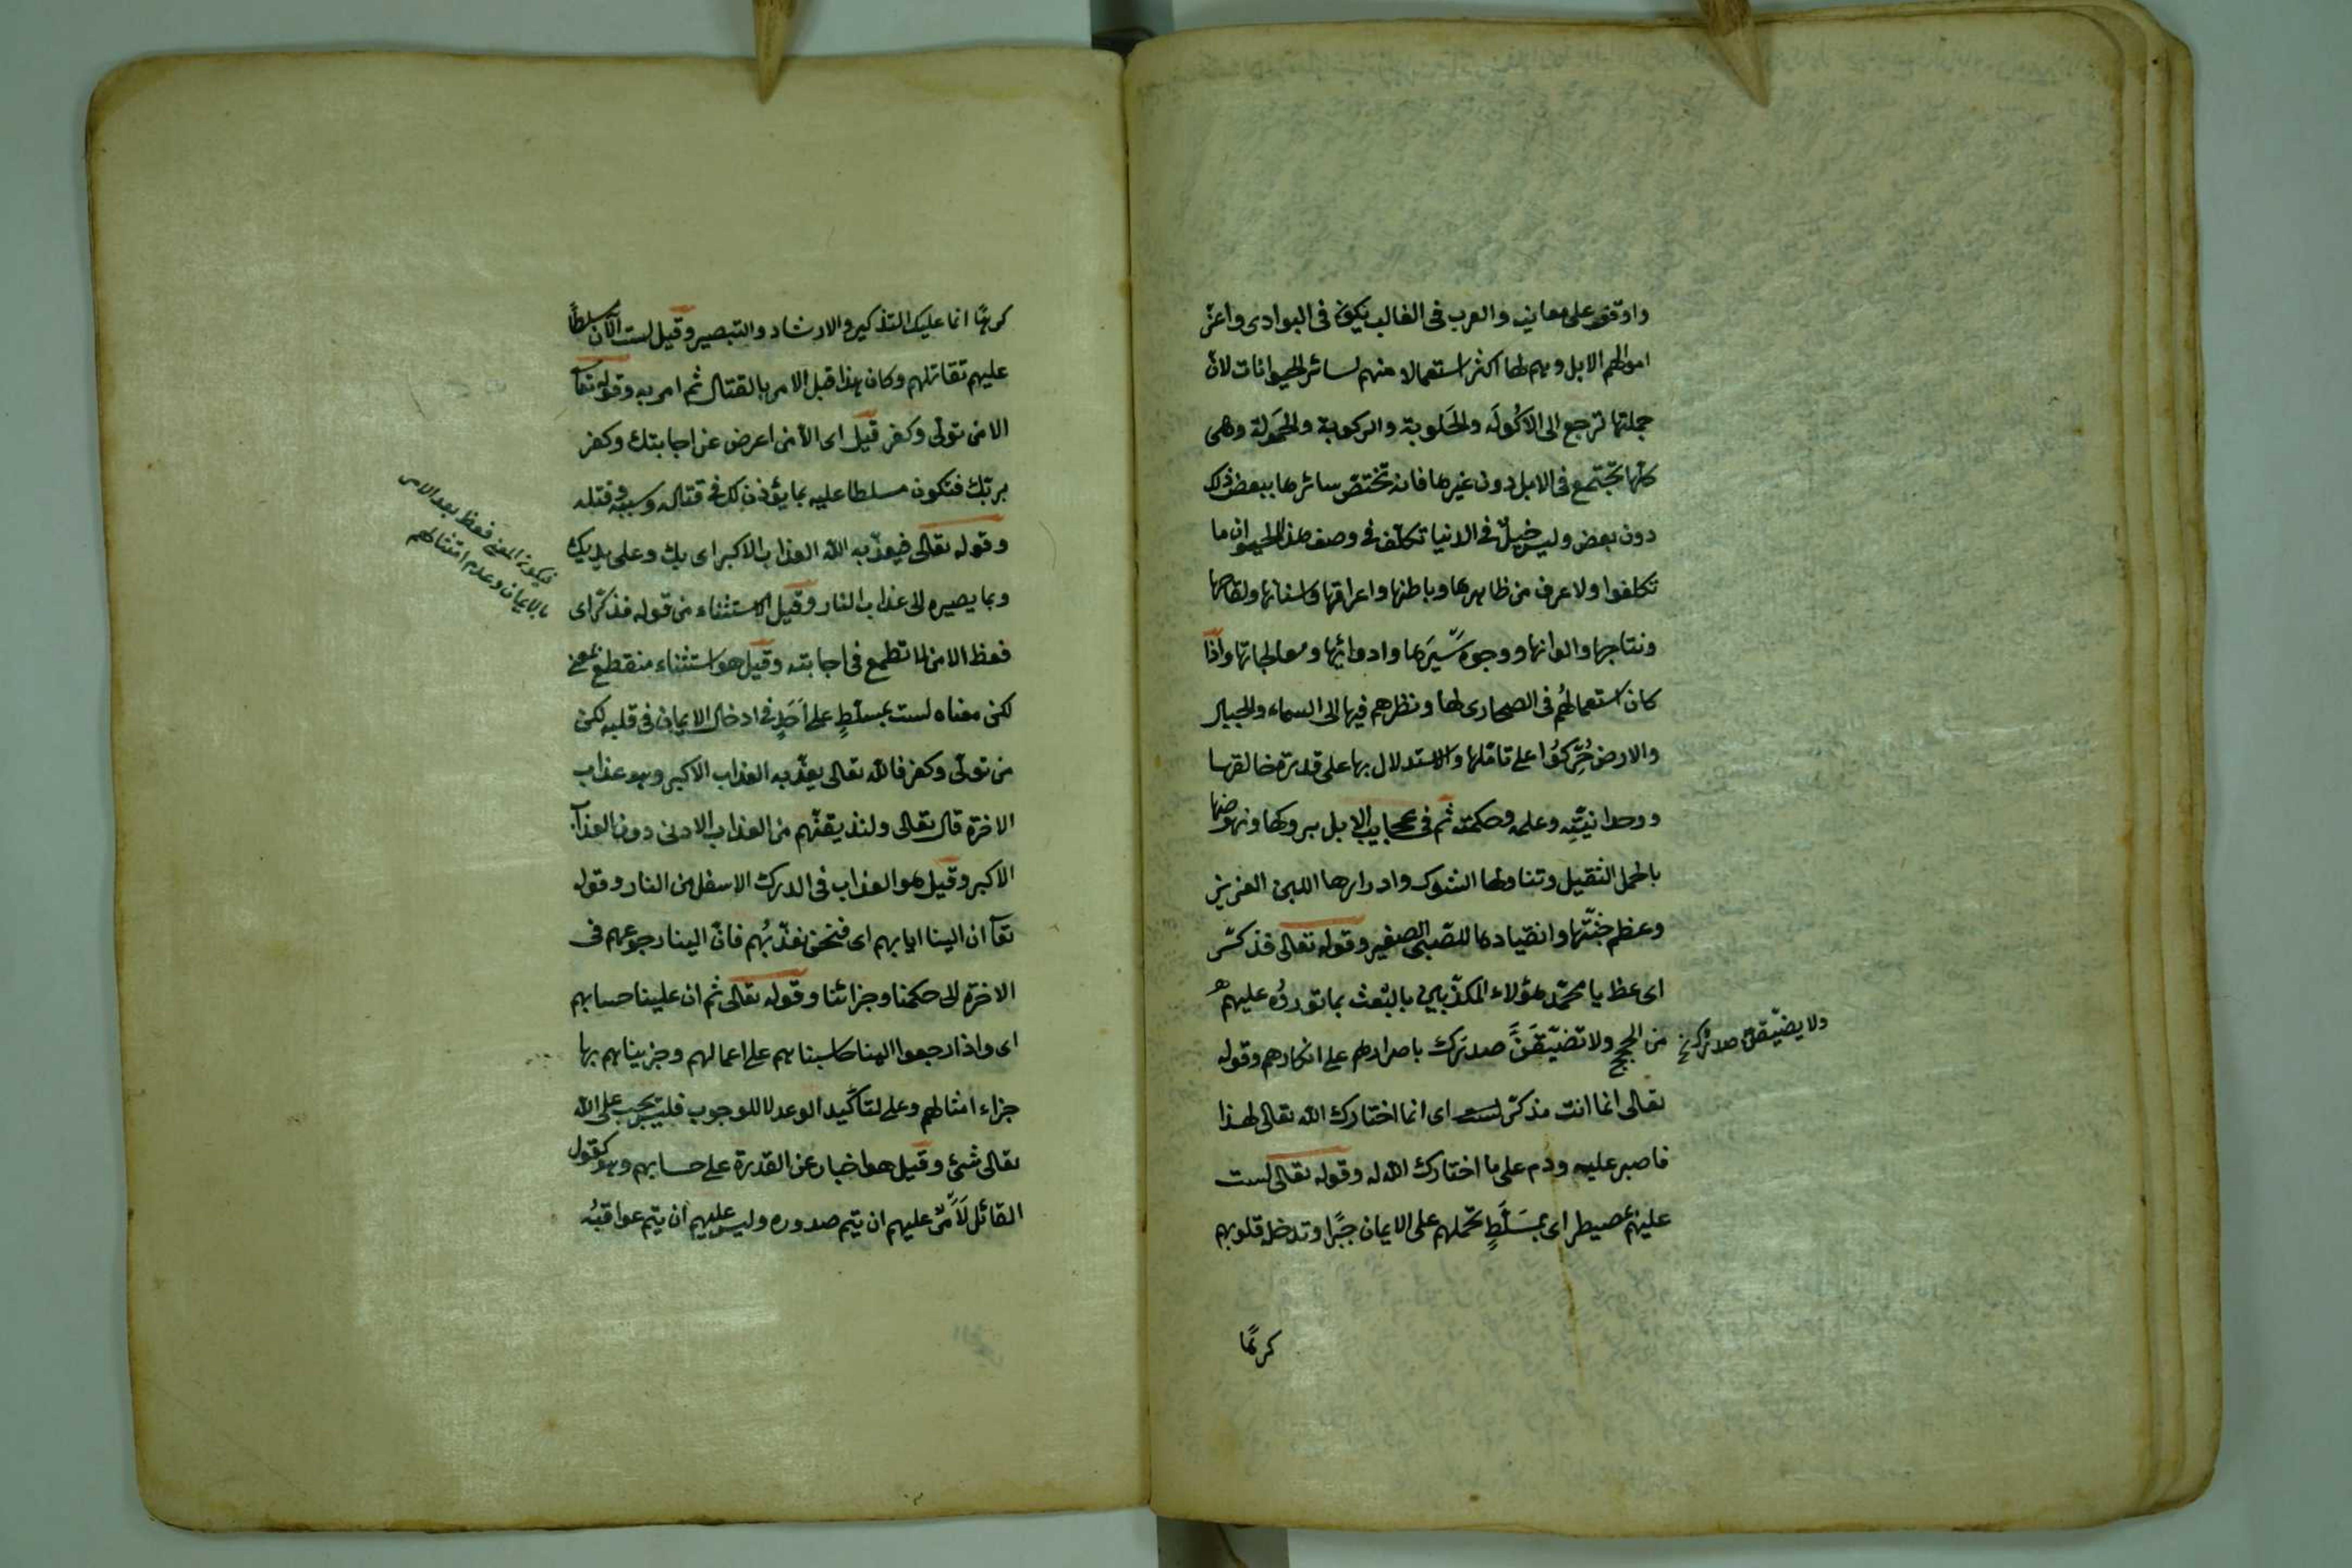 واوقفهم على معانيه والعرب في الغالب يكون في البوادى واعزّ
اموالهم الابل وهم لها اكثر استعمالا منهم لسائر الحيوانات لانّ
جملتها ترجع الى الاكُولَة والحَلوبة والركوبة والحَمولة وهى
كلّها تجتمع في الابل دون غيرها فانه تختصّ سائرها ببعض ذلك
دون بعض وليس خيلٌ في الدنيا تكلّف في وصف هذا الحيوان ما
تكلفوا ولا عرف من ظاهرها وباطنها واعراقها واسنانها ولقاحها
ونتاجها والوانها ووجوه سَيرَها وادوائها ومعالجاتها واذا
كان استعمالهُم في الصحارى لها ونظرهم فيها الى السماء والجبال
والارض حُرِّكوُا على تامّلها والاستدلال بها على قدرة خالقها
ووحدانيّتِه وعلمه وحكمته ثم في عجايب الابل بروكها ونهوضها
بالحمل الثقيل وتناولها الشوك وادرارها اللبن الغزير
وعظم جثّتها وانقيادها للصّبى الصغير وقوله تعالى فذكّر
اى عظ يا محمّد هؤلاء المكذّبين بالبَعث بما توردُه عليهم
من الحجج ولا تضيّقَنَّ صدرَك باصرارهم على انكارهم وقوله
ولا يضيّقنّ صدرك نخ
تعالى انما انت مذكّر لست اى انما اختارك الله تعالى لهذا
فاصبر عليه ودم على ما اختارك الله له وقوله تعالى لست
عليهم بمصيطر اى بمسَلَّطٍ تحملهم على الايمان جبرًا وتدخل قلوبهم
كرهًا
كرهًا انما عليك التذكير والارشاد والتبصير وقيل لست الآن مسلطاً
عليهم تقاتلهم وكان هذا قبل الامر بالقتال ثم امر به وقوله تعآ
الا من تولّى وكفر قيل اى الا من اعرض عن اجابتك وكفر
بربّك فتكون مسلطا عليه بما يؤذن لك في قتاله وسبيه وقتله
وقوله تعالى فيعذّبه الله العذاب الاكبر اى بك وعلى يديك
فيكون المعنى فعظ بعد الامر
بالايمان وعدم امتثالهم
وبما يصيره الى عذاب النار وقيل الاستثناء من قوله فذكّر اى
فعظ الا من لا تطمع في اجابته وقيل هو استثناء منقطع بمعنى
لكن معناه لست بمسلّطٍ على احَدٍ في ادخال الايمان في قلبه لكن
من تولّى وكفر فالله تعالى يعذّبه العذاب الاكبر وهو عذاب
الاخرة قال تعالى ولنذيقنّهم من العذاب الادنى دون العذاب
الاكبر وقيل هو العذاب في الدرك الاسفل من النار وقوله
تعآ ان الينا ايابهم اى فنحن نعذّبُهم فانّ الينا رجوعهم في
الاخرة الى حكمنا وجزائنا وقوله تعالى ثم ان علينا حسابهم
اى واذا رجعوا الينا حاسبناهم على اعمالهم وجزيناهم بها
جزاء امثالهم وعلى لتأكيد الوعد لا للوجوب فليس يجب على الله
تعالى شئ وقيل هو اخبار عن القدرة على حسابهم وهو كقول
القائل عليهم ان يتم صدوره وليس عليهم ان يتم عواقبُه